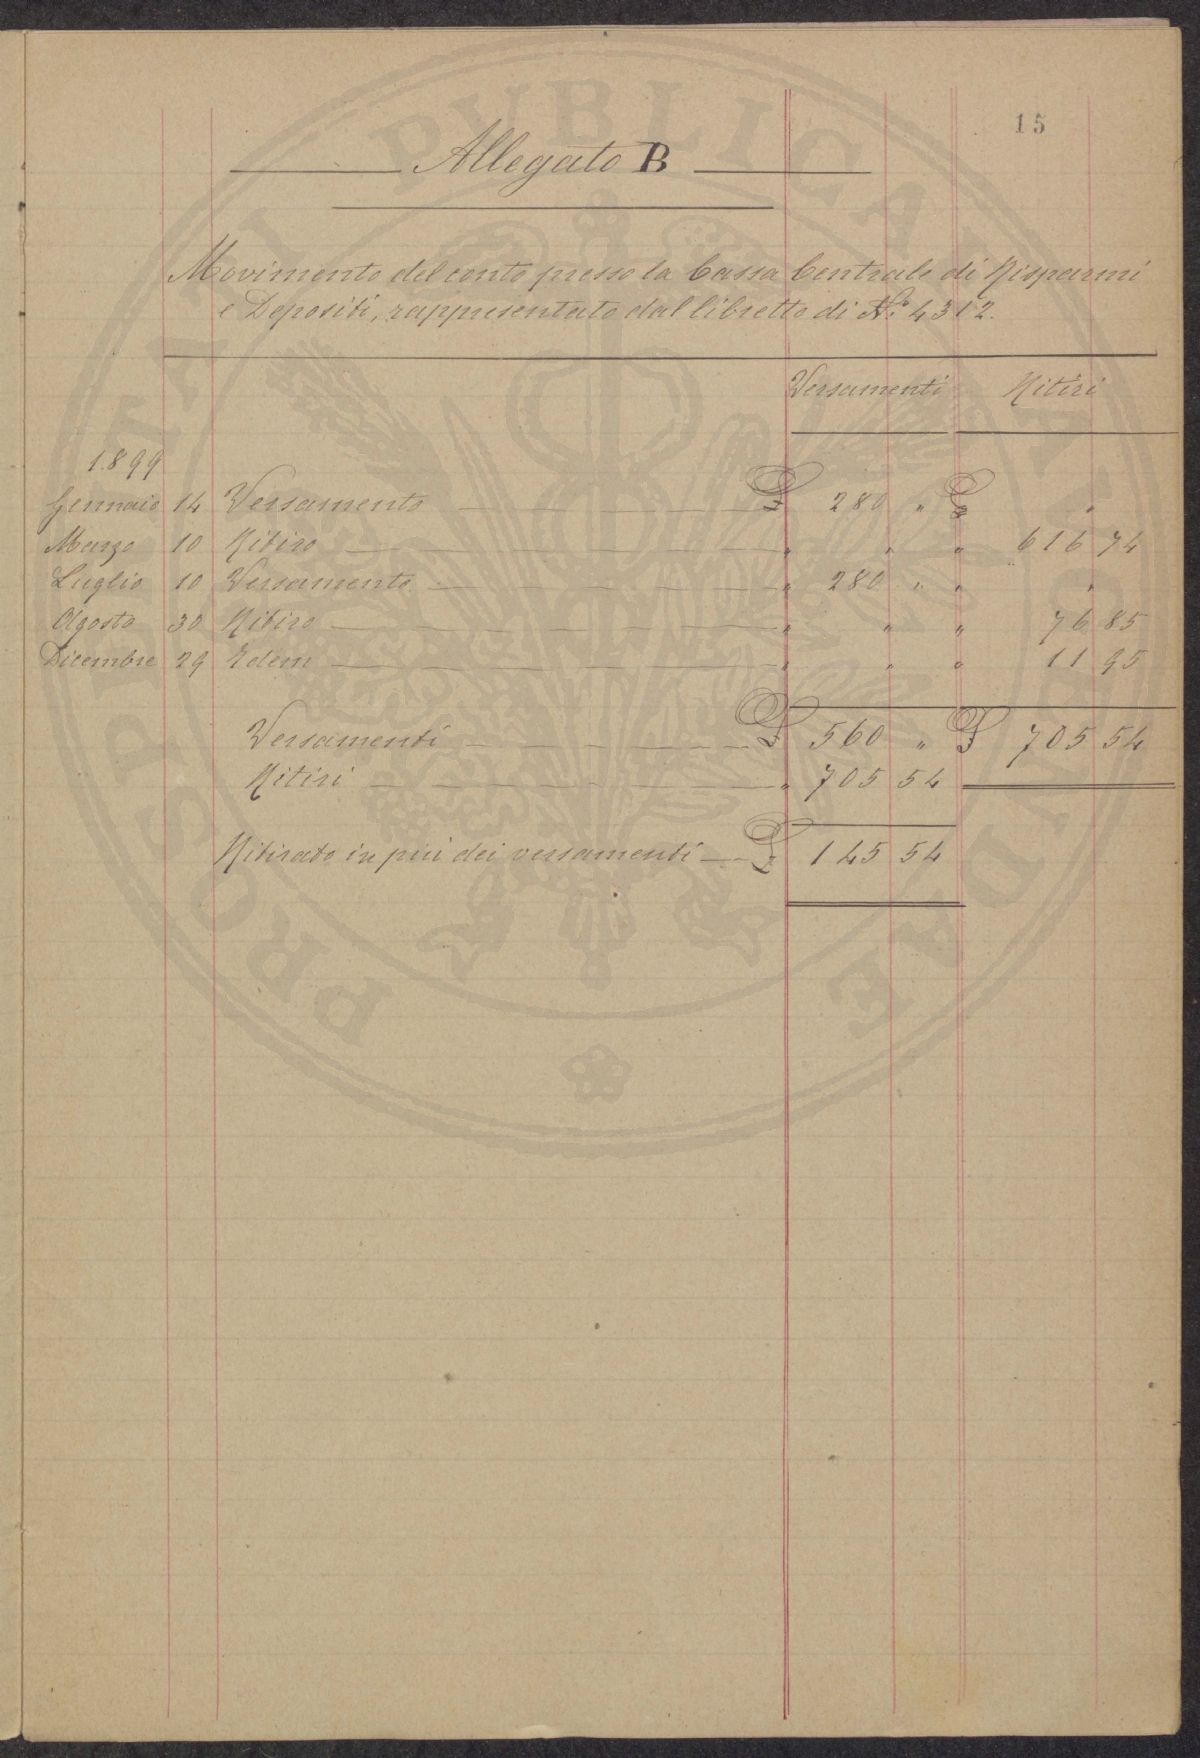 15
Allegato B
Movimento del conto presso la Cassa Centrale di Risparmi
e Depositi, rappresentato dal libretto di N.º 4312.
Versamenti Ritiri
1899
Gennaio 14 Versamento £ 280 " £ "
Marzo 10 Ritiro " " " 616 74
Luglio 10 Versamento " 280 " " "
Agosto 30 Ritiro " " " 76 85
Dicembre 29 Idem " " " 11 95
Versamenti £ 560 " £ 705 54
Ritiri " 705 54
Ritirato in più dei versamenti £ 145 54
PROSPERITATI PUBLICAE AUGENDAE